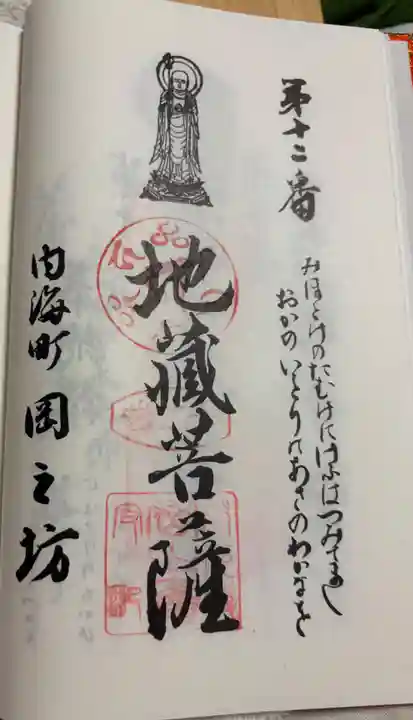 第十二番
みほとけのたむけにけふはつみてまし
おかのいとりのあさのわかなを
地蔵菩薩
内海町 岡之坊